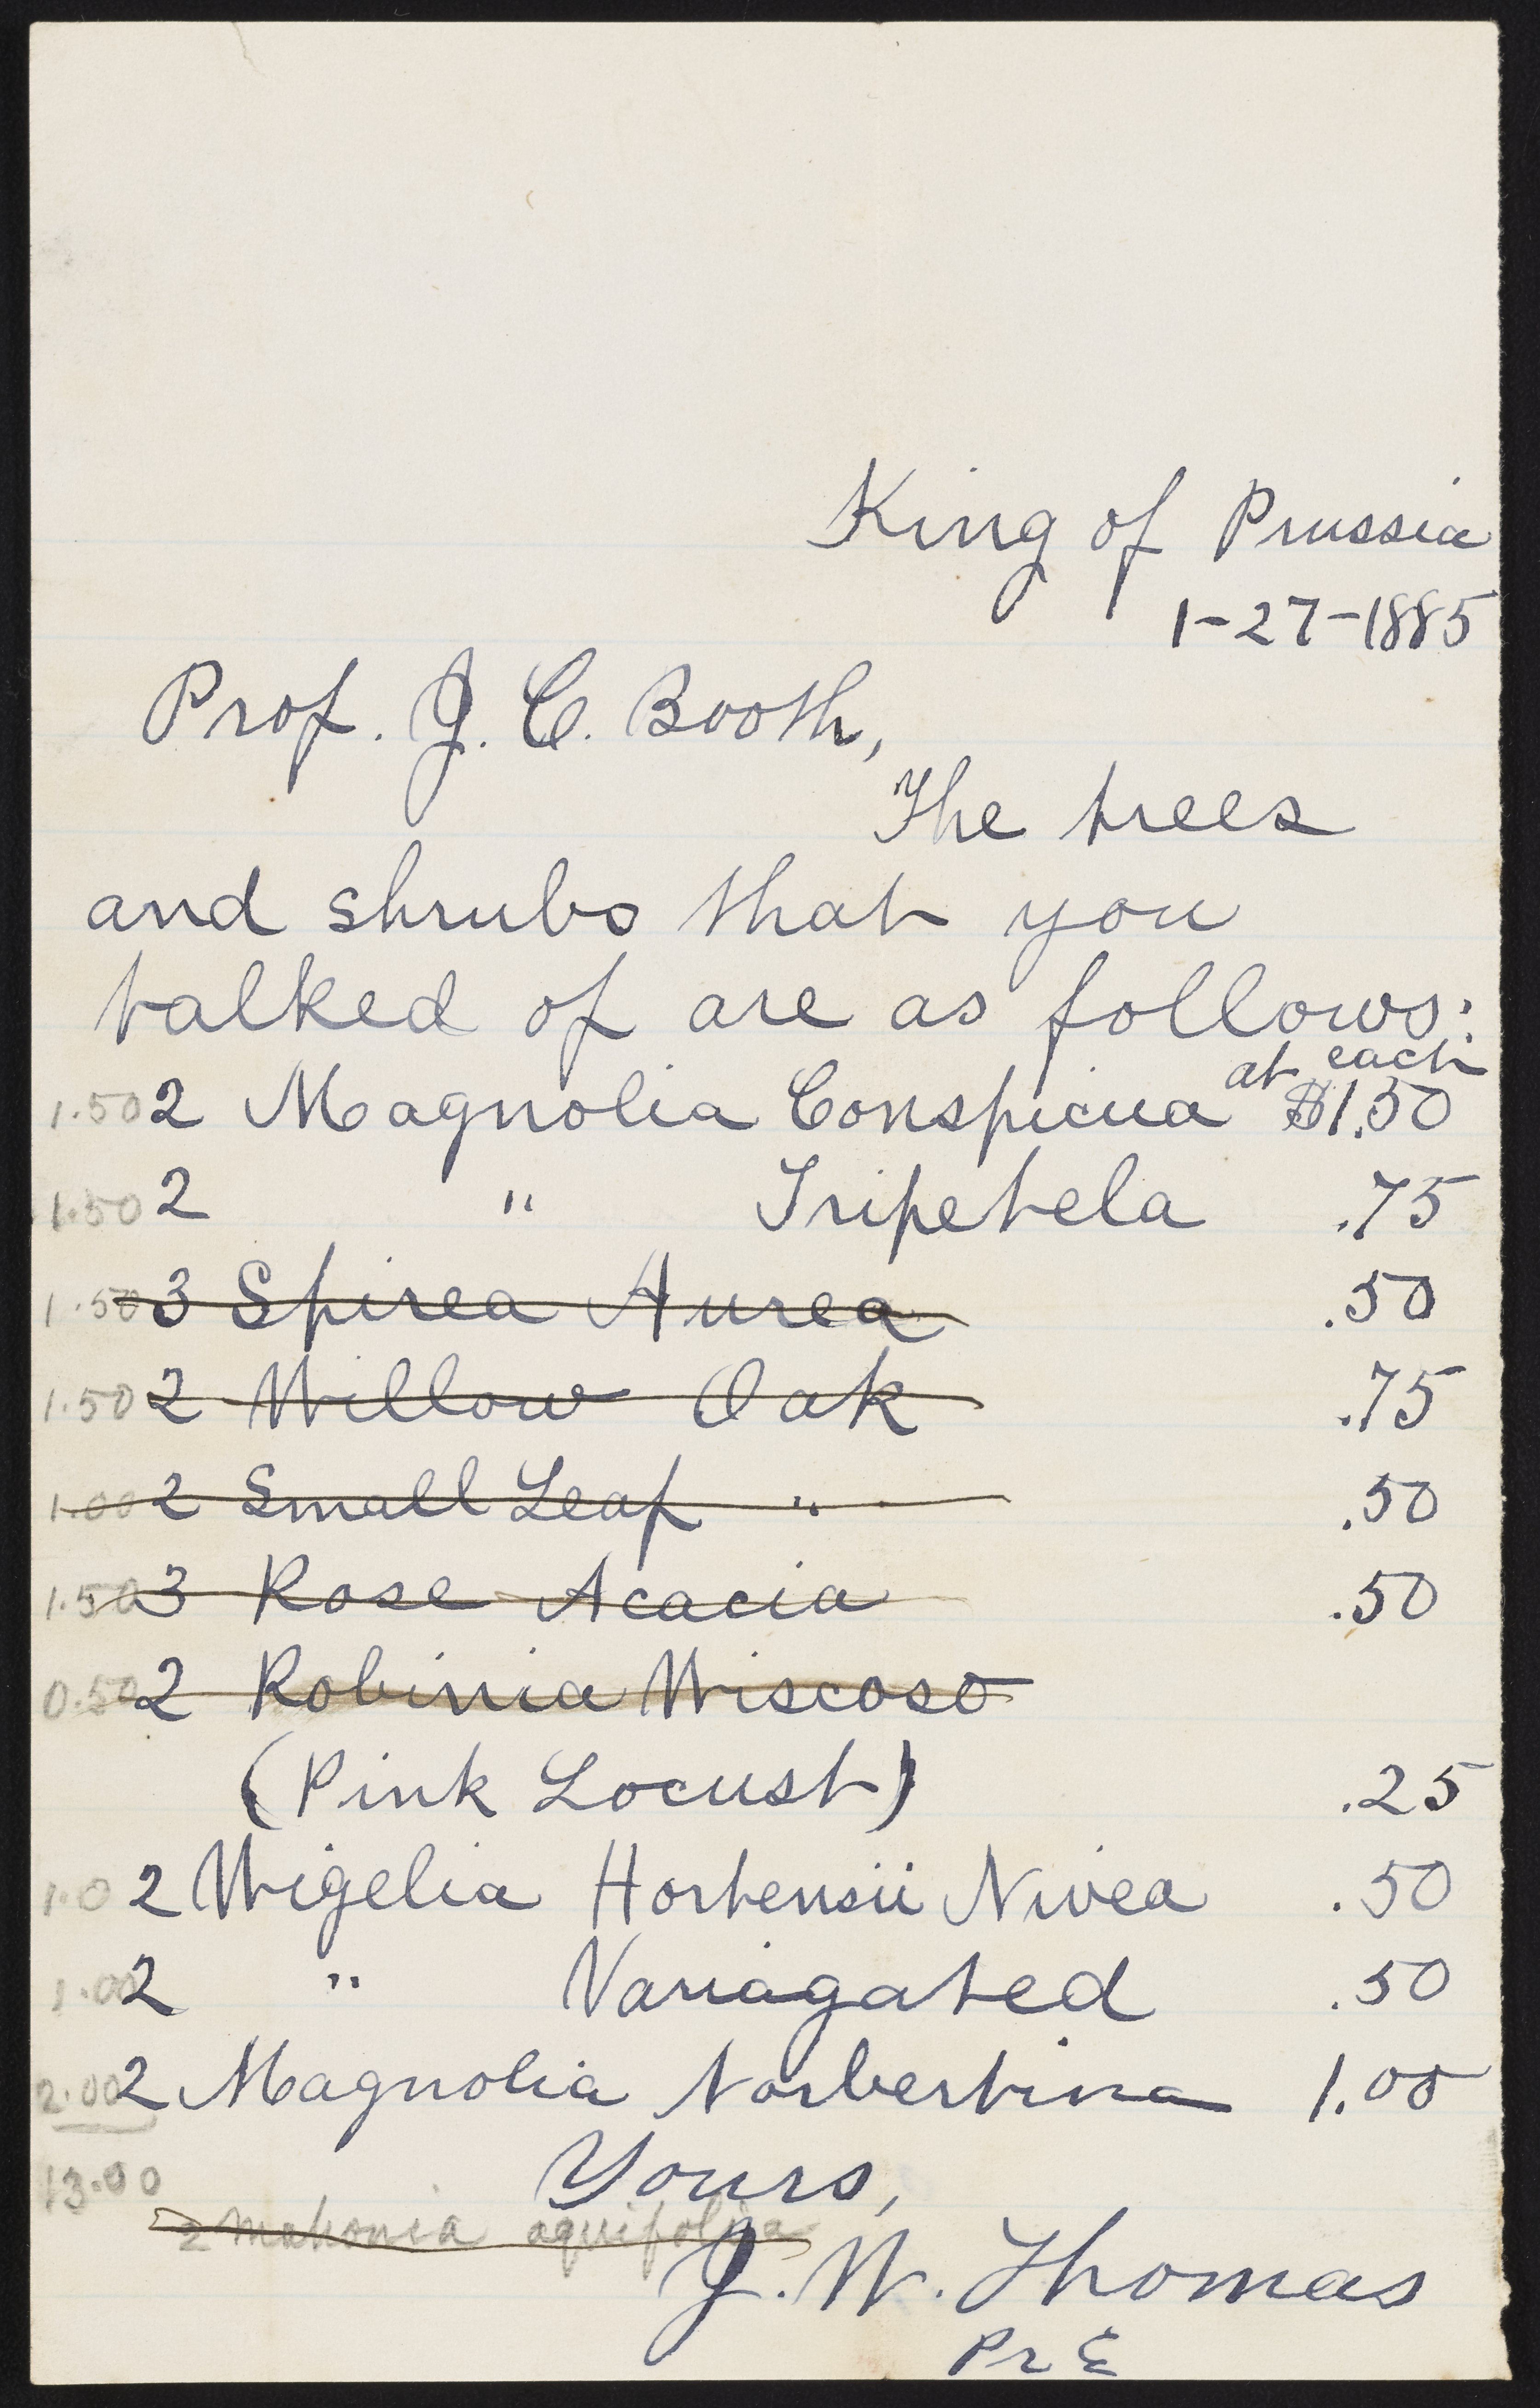 King of Prussia
1-27-1885
Prof. J. C. Booth,
The trees
and shrubs that you
talked of are as follows:
1.50 2 Magnolia Conspicua at each $1.50
1.50 2 " Tripetela .75
1.50 3 Spirea Aurea .50
1.50 2 Willow Oak .75
1.00 2 Small Leaf " .50
1.50 3 Rose Acacia .50
0.50 2 Robinia Wiscoso
(Pink Locust) .25
1.0 2 Wigelia Hortensii Nivea .50
1.00 2 " Variagated .50
2.00 2 Magnolia Norbertina 1.00
13.00
Yours,
2 mahonia aquifolia
J. W. Thomas
Pr E